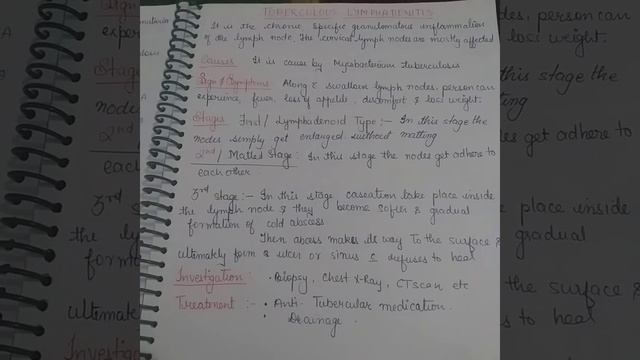 TUBERCULOUS LYMPHADENITIS
It is the chronic specific granulomatous inflammation
of the lymph node. The cervical lymph nodes are mostly affected
Causes It is cause by Mycobacterium Tuberculosis
Sign & Symptoms: Along c swollen lymph nodes, person can
experience, fever, loss of appetite, discomfort & loss weight.
Stages Ist / Lymphadenoid Type :- In this stage the
nodes simply get enlarged without matting
2nd / Matted Stage: In this stage the nodes get adhere to
each other.
3rd stage :- In this stage caseation take place inside
the lymph node & they become softer & gradual
formation of cold abscess
Then abcess makes its way To the surface &
ultimately form a ulcer or sinus c refuses to heal
Investigation : • Biopsy, Chest X-Ray, CT scan etc
Treatment :- • Anti-Tubercular medication.
• Drainage.